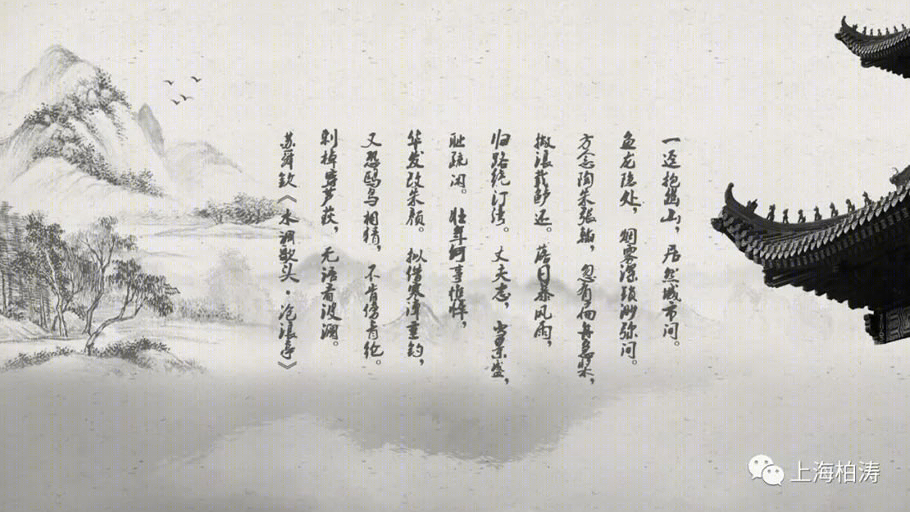 一迳抱幽山，居然城市间。
鱼龙隐处，烟雾深锁渺弥间。
方念陶朱张翰，忽有扁舟急桨，
撇浪载鲈还。落日暴风雨，
归路绕汀湾。丈夫志，当景盛，
耻疏闲。壮年何事憔悴，
华发改朱颜。拟借寒潭垂钓，
又恐鸥鸟相猜，不肯傍青纶。
刺棹穿芦荻，无语看波澜。
苏舜钦《水调歌头·沧浪亭》
上海柏涛